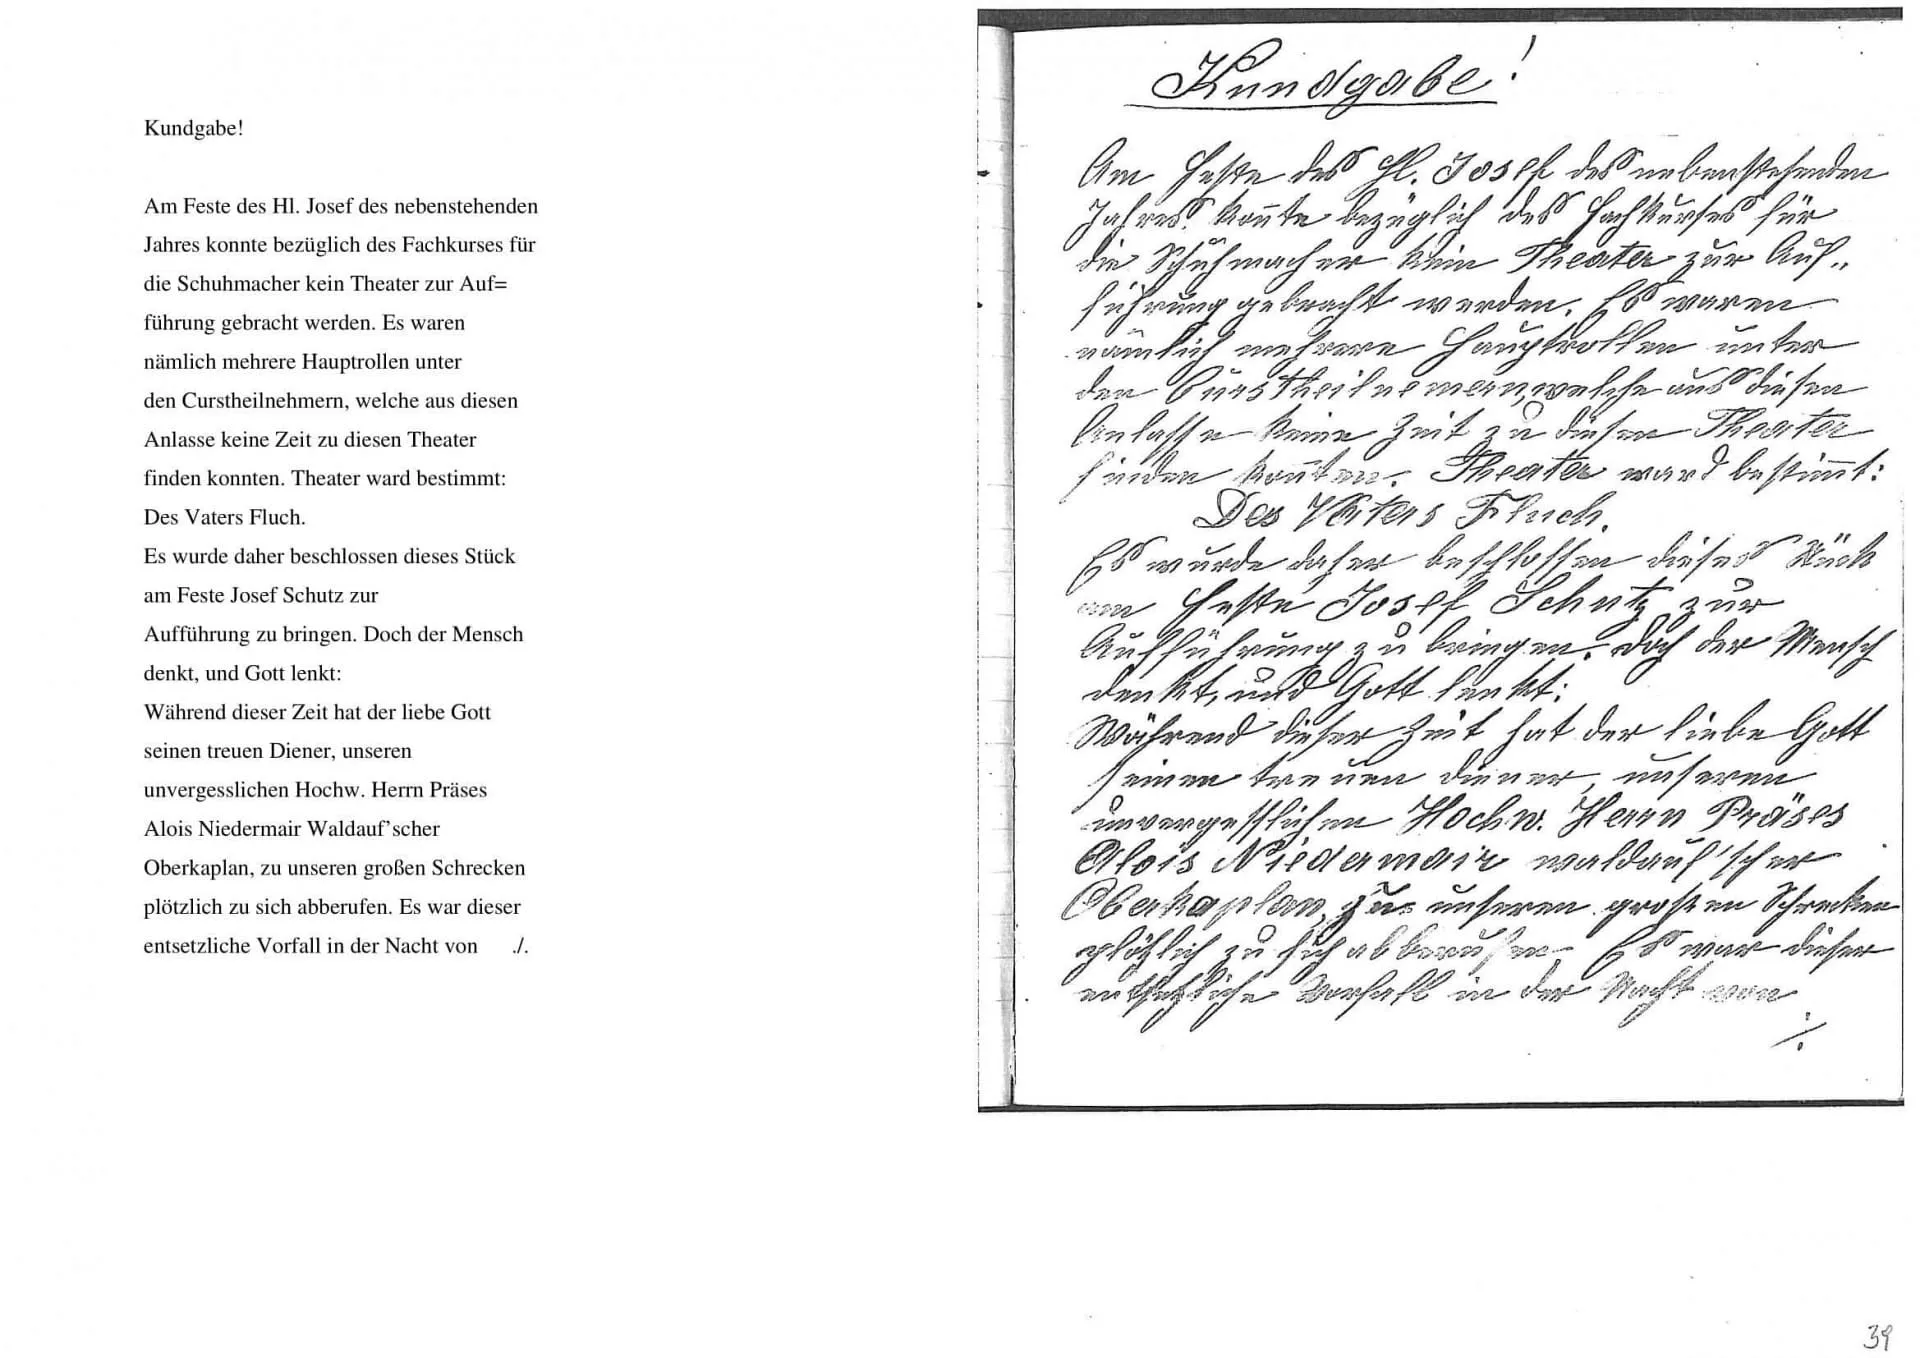 Kundgabe!
Am Feste des Hl. Josef des nebenstehenden
Jahres konnte bezüglich des Fachkurses für
die Schuhmacher kein Theater zur Auf=
führung gebracht werden. Es waren
nämlich mehrere Hauptrollen unter
den Curstheilnehmern, welche aus diesen
Anlasse keine Zeit zu diesen Theater
finden konnten. Theater ward bestimmt:
Des Vaters Fluch.
Es wurde daher beschlossen dieses Stück
am Feste Josef Schutz zur
Aufführung zu bringen. Doch der Mensch
denkt, und Gott lenkt:
Während dieser Zeit hat der liebe Gott
seinen treuen Diener, unseren
unvergesslichen Hochw. Herrn Präses
Alois Niedermair Waldauf’scher
Oberkaplan, zu unseren großen Schrecken
plötzlich zu sich abberufen. Es war dieser
entsetzliche Vorfall in der Nacht von ./.
Kundgabe!
Am Feste des Hl. Josef des nebenstehenden
Jahres kon̄te bezüglich des Fachkurses für
die Schuhmacher kein Theater zur Auf„
führung gebracht werden. Es waren
nämlich mehrere Hauptrollen unter
den Curstheilnemern, welche aus diesen
Anlasse keine Zeit zu diesen Theater
finden kon̄ten. Theater ward bestim̄t:
Des Vaters Fluch.
Es wurde daher beschlossen dieses Stück
am Feste Josef Schutz zur
Aufführung zu bringen. Doch der Mensch
denkt, und Gott lenkt:
Während dieser Zeit hat der liebe Gott
seinen treuen diener, unseren
unvergesslichen Hochw. Herrn Präses
Alois Niedermair waldauf'scher
Oberkaplan, zu unseren großen Schrecken
plötzlich zu sich abberufen. Es war dieser
entsetzliche Vorfall in der Nacht von
./.
39